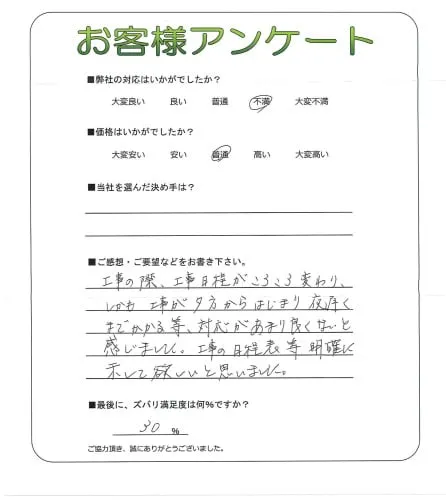 お客様アンケート
■弊社の対応はいかがでしたか？
大変良い 良い 普通 不満 大変不満
■価格はいかがでしたか？
大変安い 安い 普通 高い 大変高い
■当社を選んだ決め手は？
■ご感想・ご要望などをお書き下さい。
工事の際、工事日程がころころ変わり、
しかも 工事が夕方からはじまり 夜遅く
までかかる等、対応があまり良くないと
感じました。工事の日程表等 明確に
示して欲しいと思いました。
■最後に、ズバリ満足度は何％ですか？
30 ％
ご協力頂き、誠にありがとうございました。